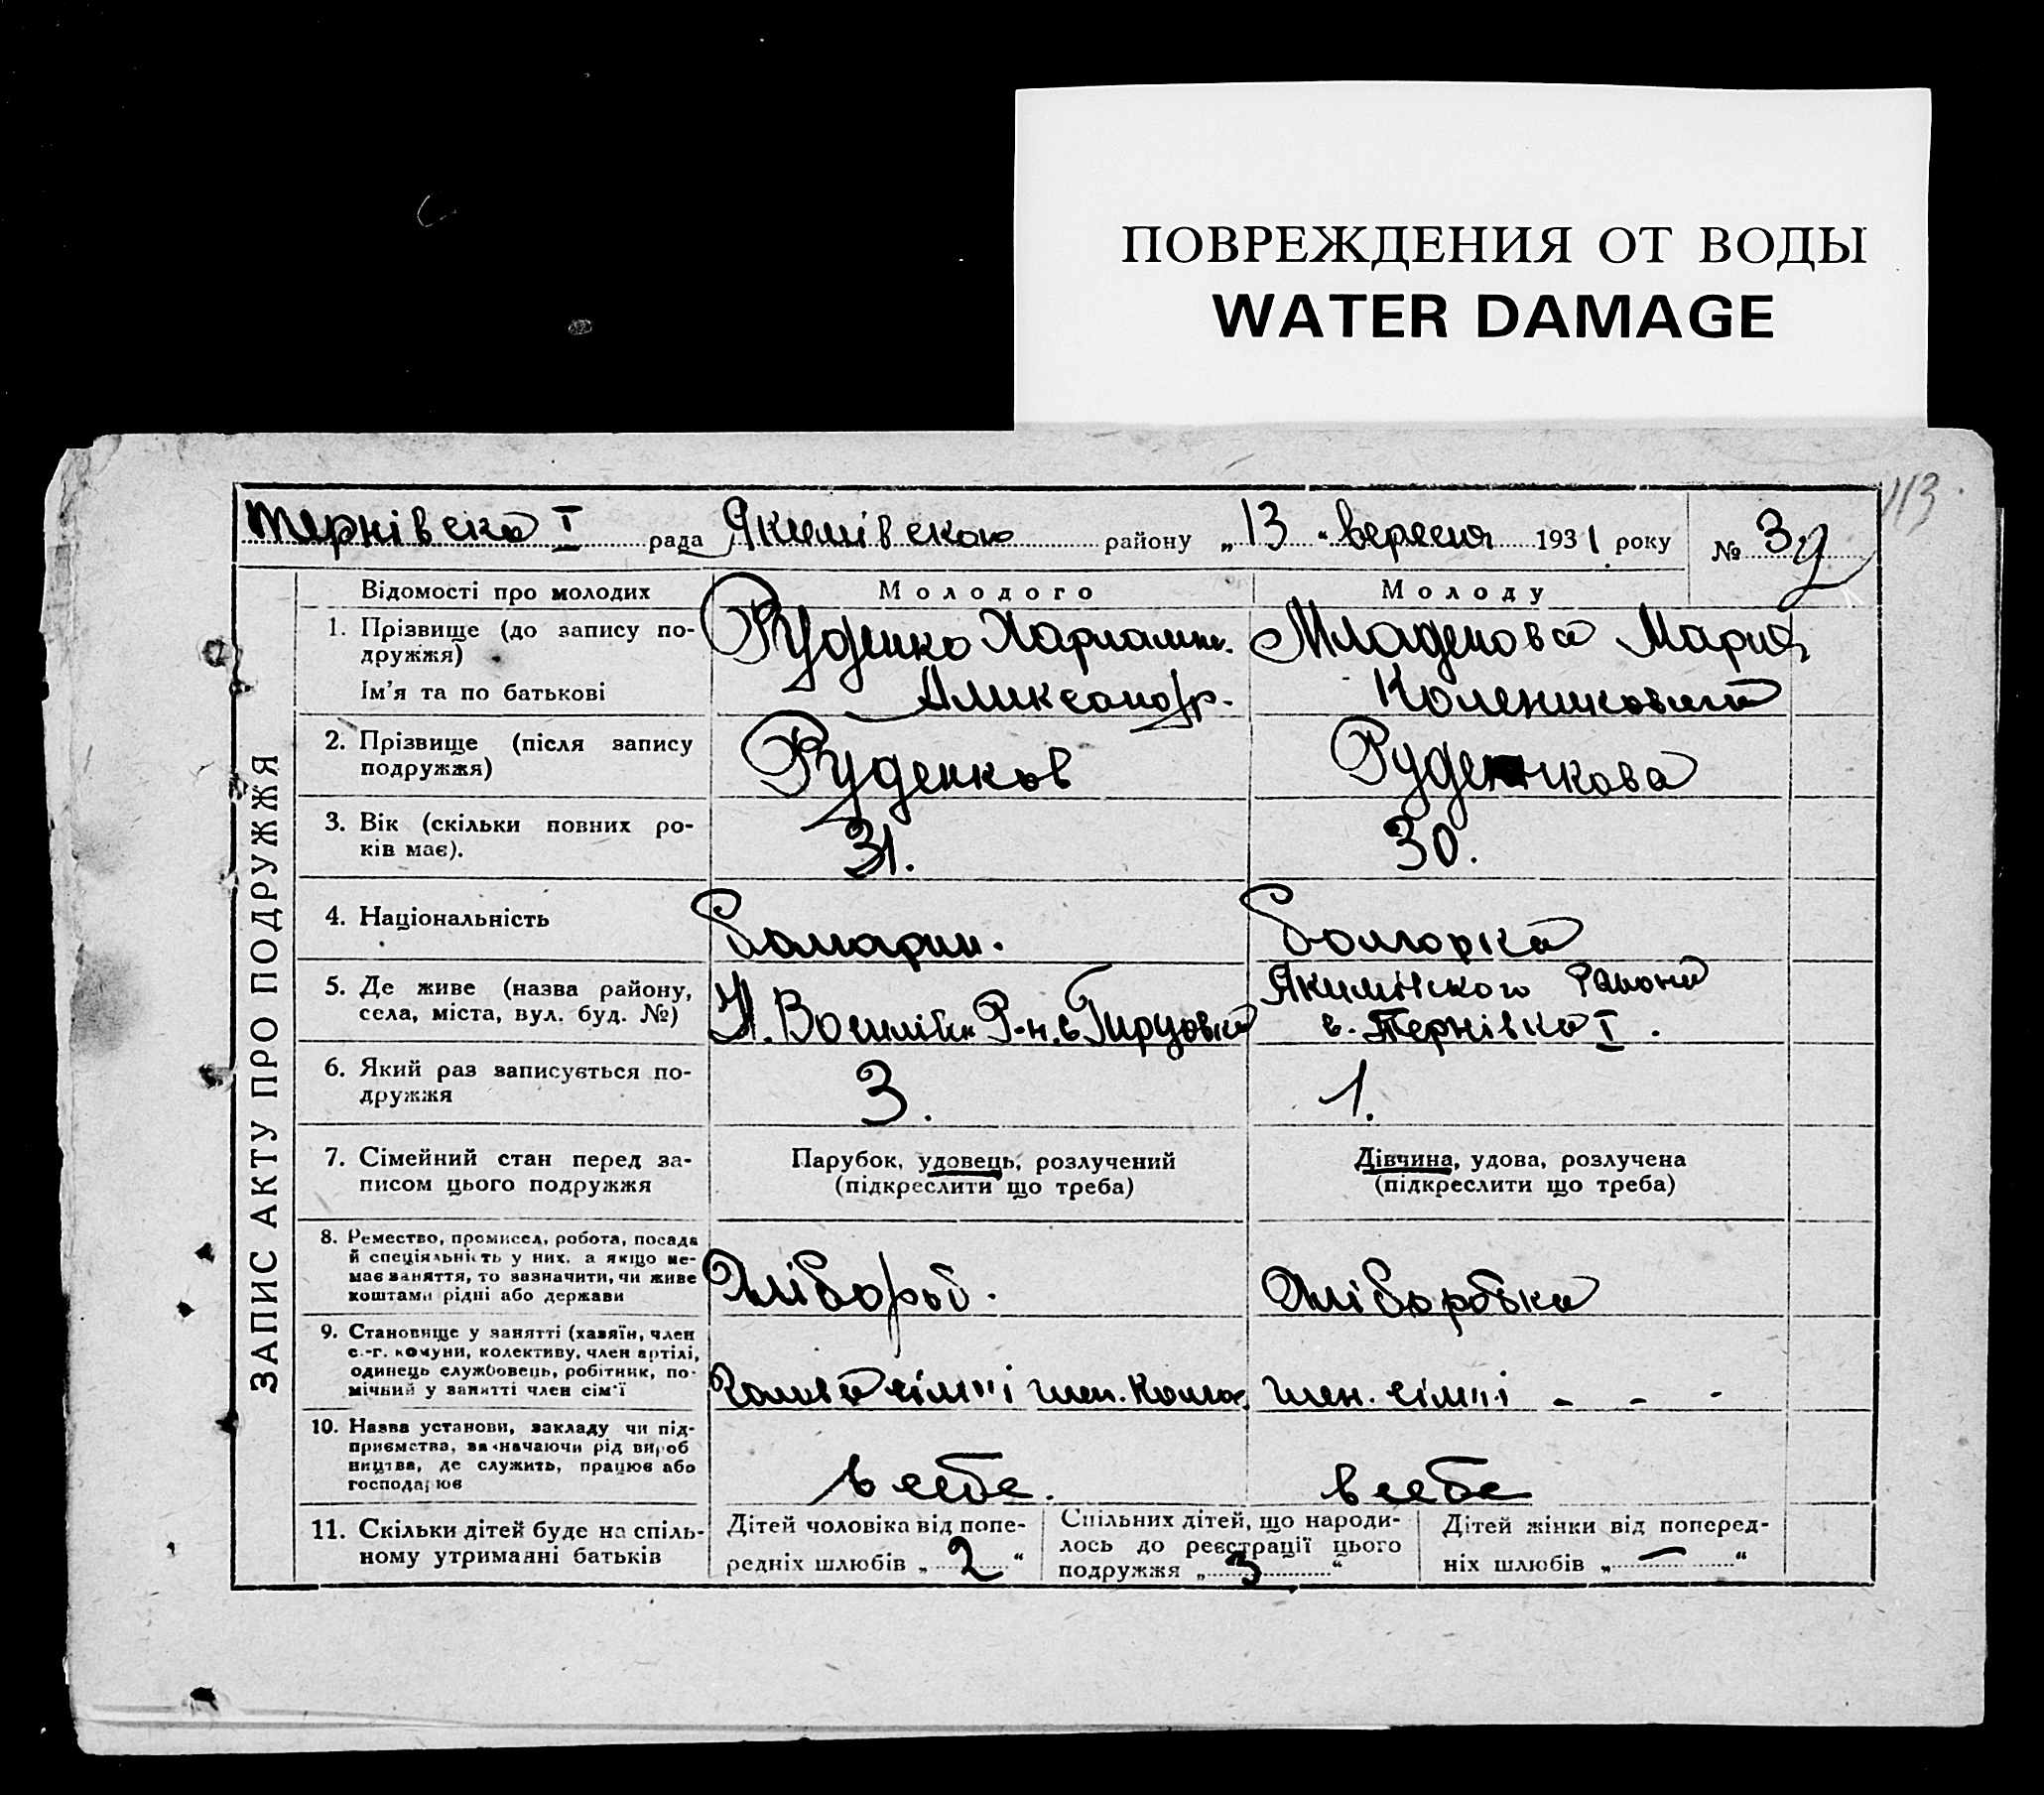 ПОВРЕЖДЕНИЯ ОТ ВОДЫ
WATER DAMAGE
113
Тернівска I рада Якимівскою району „13“ вересня 1931 року № 32
ЗАПИС АКТУ ПРО ПОДРУЖЖЯ
Відомості про молодих Молодого Молоду
1. Прізвище (до запису по-
дружжя)
Ім'я та по батькові
Руденко Харлами.
Александр.
Младенова Мария
2. Прізвище (після запису
подружжя)
Руденков
Руденкова
3. Вік (скільки повних ро-
ків має).
31.
30.
4. Національність
Болгарин.
Болгорка
5. Де живе (назва району,
села, міста, вул. буд. №)
Н. Василівк Р-н. с Гирсовка
Якимівского Району
с. Тернівка I.
6. Який раз записується по-
дружжя
3.
1.
7. Сімейний стан перед за-
писом цього подружжя
Парубок, удовець, розлучений
(підкреслити що треба)
Дівчина, удова, розлучена
(підкреслити що треба)
8. Ремество, промисел, робота, посада
й спеціяльність у них, а якщо не-
має заняття, то зазначити, чи живе
коштами рідні або держави
Хлібороб.
Хліборобка
9. Становище у занятті (хазяїн, член
с.-г. комуни, колективу, член артілі,
одинець службовець, робітник, по-
мічний у занятті член сім'ї
Голова сімії член. Колг.
член. сімії - - -
10. Назва установи, закладу чи під-
приємства, зазначаючи рід вироб
ництва, де служить, працює або
господарює
в себе.
в себе
11. Скільки дітей буде на спіль-
ному утриманні батьків
Дітей чоловіка від попе-
редніх шлюбів „2“
Спільних дітей, що народи-
лось до реєстрації цього
подружжя „3“
Дітей жінки від поперед-
ніх шлюбів „—“